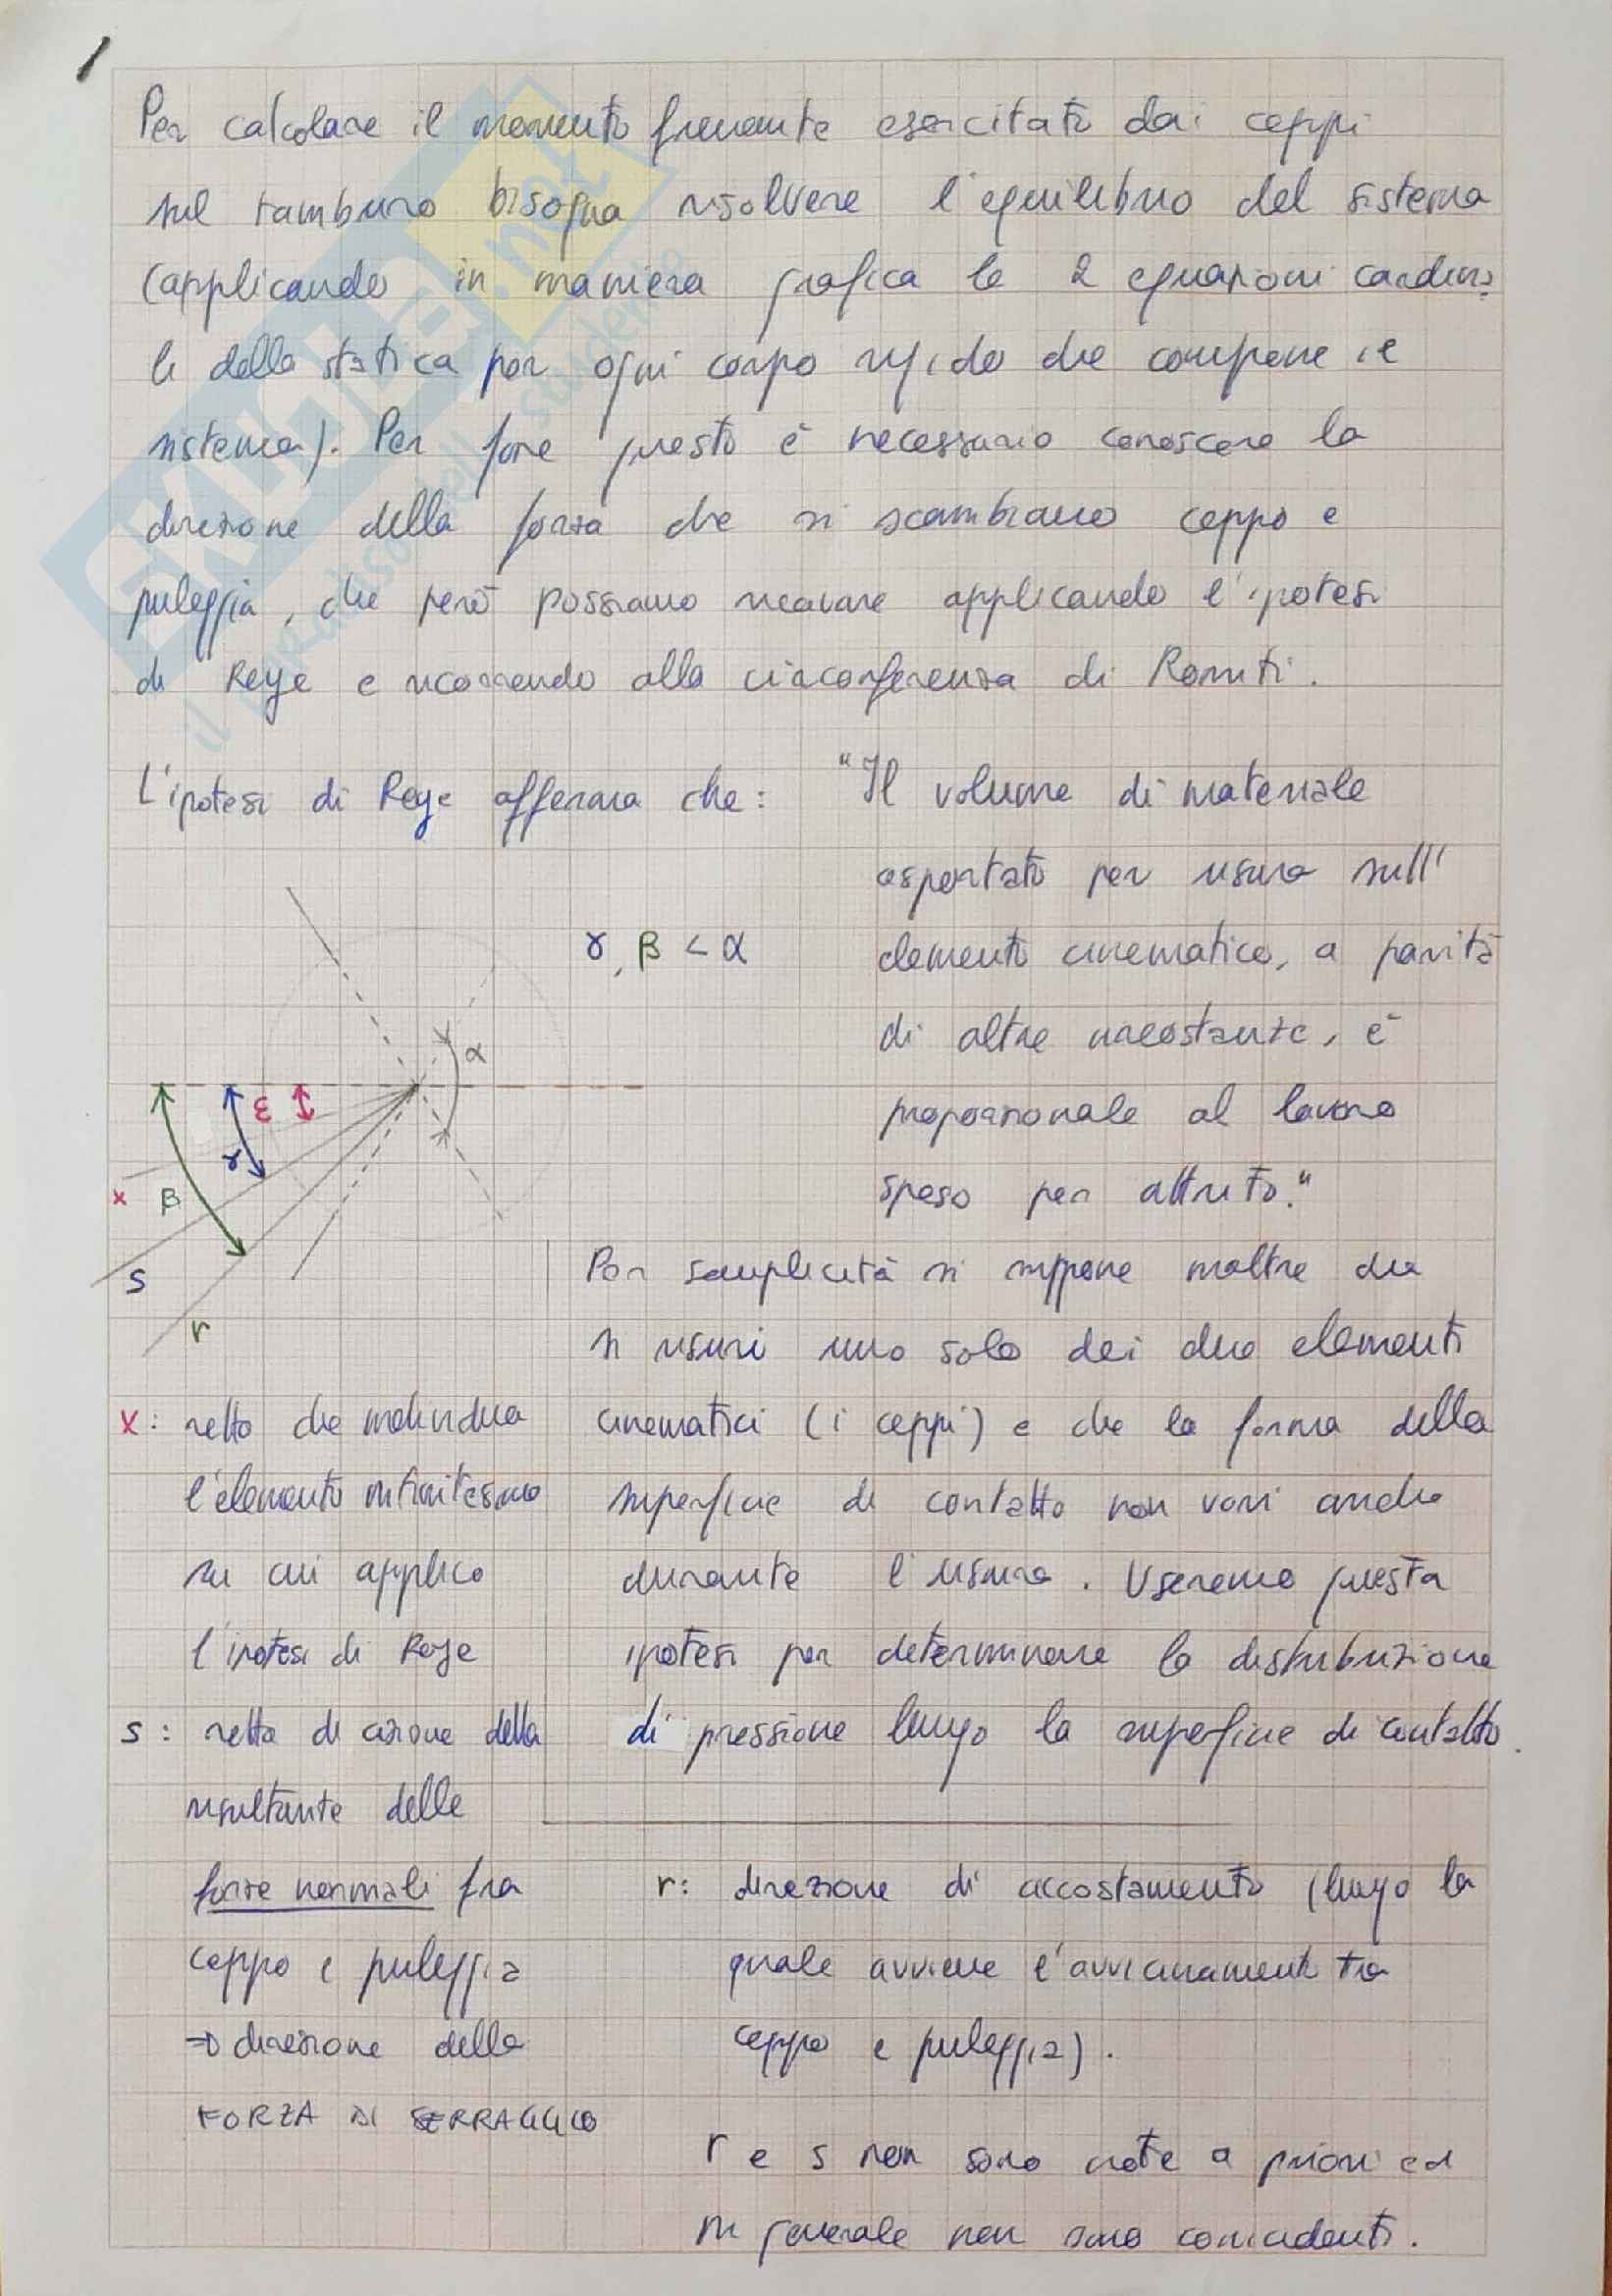 1
Per calcolare il momento frenante esercitato dai ceppi
sul tamburo bisogna risolvere l'equilibrio del sistema
(applicando in maniera grafica le 2 equazioni cardina
li della statica per ogni corpo rigido che compone il
sistema). Per fare questo è necessario conoscere la
direzione della forza che si scambiano ceppo e
puleggia, che però possiamo ricavare applicando l'ipotesi
di Reye e ricorrendo alla circonferenza di Romiti.
L'ipotesi di Reye afferma che: "Il volume di materiale
asportato per usura sull'
elemento cinematico, a parità
di altre circostanze, è
proporzionale al lavoro
speso per attrito."
γ, β < α
α
ε
γ
β
x
s
r
Per semplicità si suppone inoltre che
si usuri uno solo dei due elementi
cinematici (i ceppi) e che la forma della
superficie di contatto non vari anche
durante l'usura. Useremo questa
ipotesi per determinare la distribuzione
di pressione lungo la superficie di contatto.
x: retta che individua
l'elemento infinitesimo
su cui applico
l'ipotesi di Reye
s: retta di azione della
risultante delle
forze normali fra
ceppo e puleggia
⇒ direzione della
FORZA DI SERRAGGIO
r: direzione di accostamento (lungo la
quale avviene l'avvicinamento tra
ceppo e puleggia).
r e s non sono note a priori ed
in generale non sono coincidenti.
SKUOLA.net
il paradiso dello studente